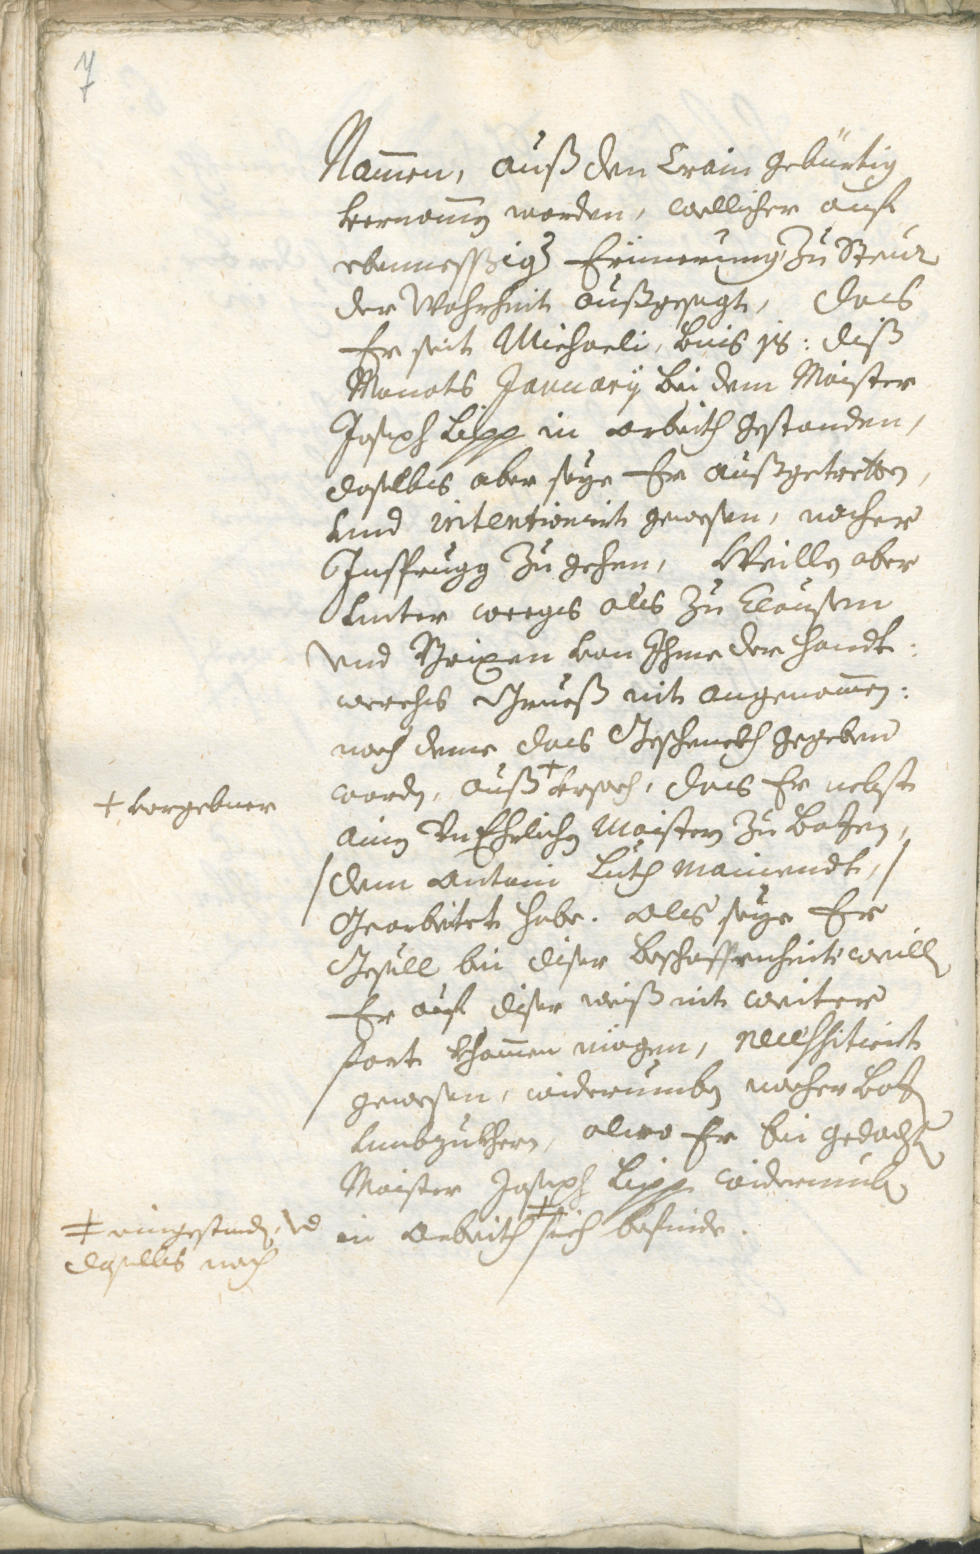 7
Nammen, auß den Crain gebürtig
vernomen worden, wellicher auf
ebenmessßige Erinnerung zu Steur
der Wahrheit außgesagt, das
Er seit Michaeli, biß 18: diß
Monats January bei dem Maister
Joseph Lipp in arbeith gestanden,
daselbs aber seye Er außgetretten,
und intentionirt gewesen, nacher
Insprugg zu gehen, Weillen aber
unter weegs als zu Clausen
und Brixen von Ihme der Handt-
werchs Grueß nit angenommen:
noch deme das Geschenckh gegeben
worden, auß + Ursach, das Er nebst
+ vorgebner
ainen UnEhrlichen Maistern zu Botzen,
/ dem Antoni Luth mainendt, /
Gearbeitet habe. Als seye Er
Gesell bei diser beschaffenheit weillen
Er auf dise weiß nit weiter
fort khommen mögen, necessitirt
gewesen, widerumben nacher Botzen
umbzukhern, alwo Er bei gedachten
Maister Joseph Lipp widerumben
in Arbeith ‡ sich befinde.
‡ eingestanden, und
daselbs noch